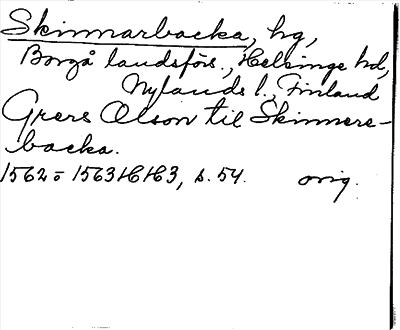 Skinnarbacka, hg,
Borgå landsförs., Helsinge hd,
Nylands l., Finland
Grers Olson til Skinners-
backa.
1562 = 1563 H H 3, s. 54. orig.